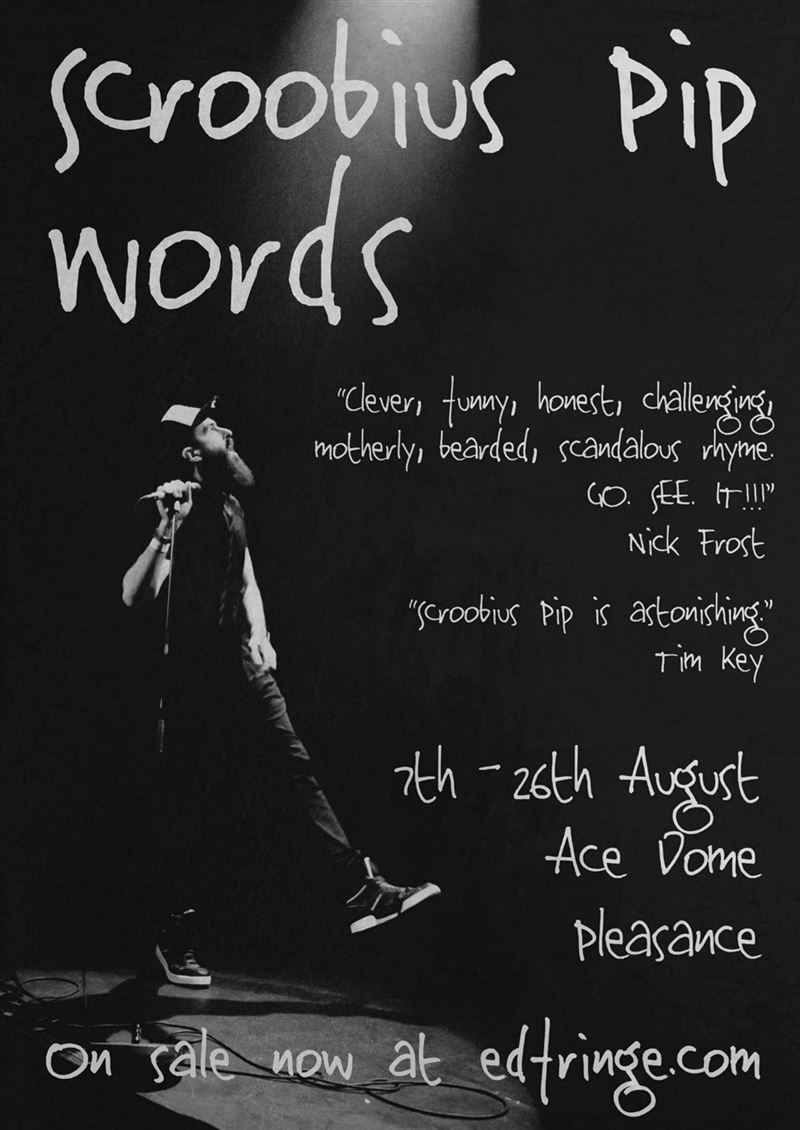 scroobius pip
words
"Clever, funny, honest, challenging,
motherly, bearded, scandalous rhyme.
GO. SEE. IT!!!"
Nick Frost
"scroobius pip is astonishing."
Tim Key
7th - 26th August
Ace Dome
pleasance
On sale now at edfringe.com